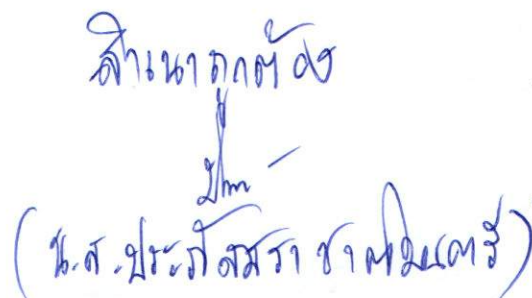 สำเนาถูกต้อง
(น.ส.ประภัสสรา ชาตโมนตรี)